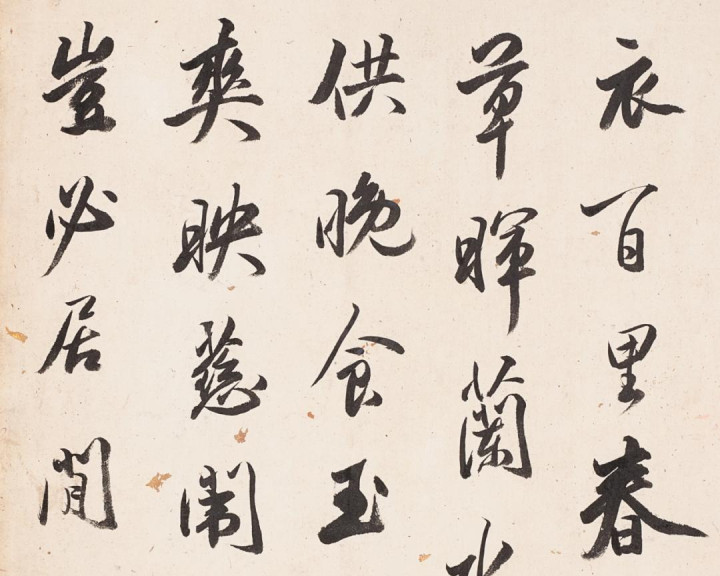 衣百里春
草暉蘭水
供晚食玉
爽映慈闈
豈必居閒